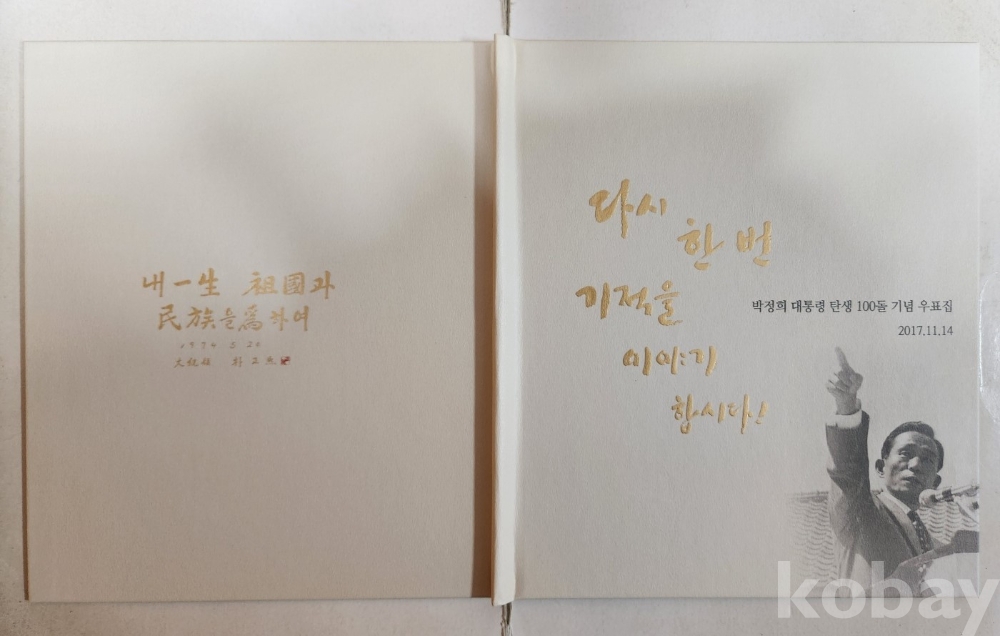 내 一生 祖國과
民族을 爲하여
1974 5 20
大統領 朴正熙
다시
한 번
기적을
이야기
합시다!
박정희 대통령 탄생 100돌 기념 우표집
2017.11.14
kobay